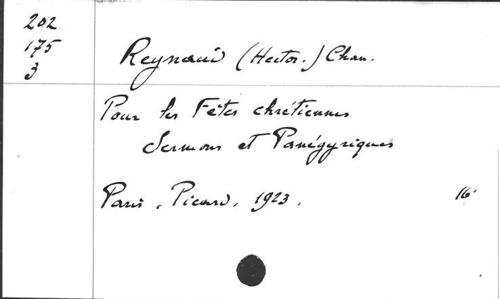 202
175
3
Reynaud (Hector.) Chan.
Pour les Fêtes chrétiennes
Sermons et Panégyriques
Paris, Picard, 1923.
16°